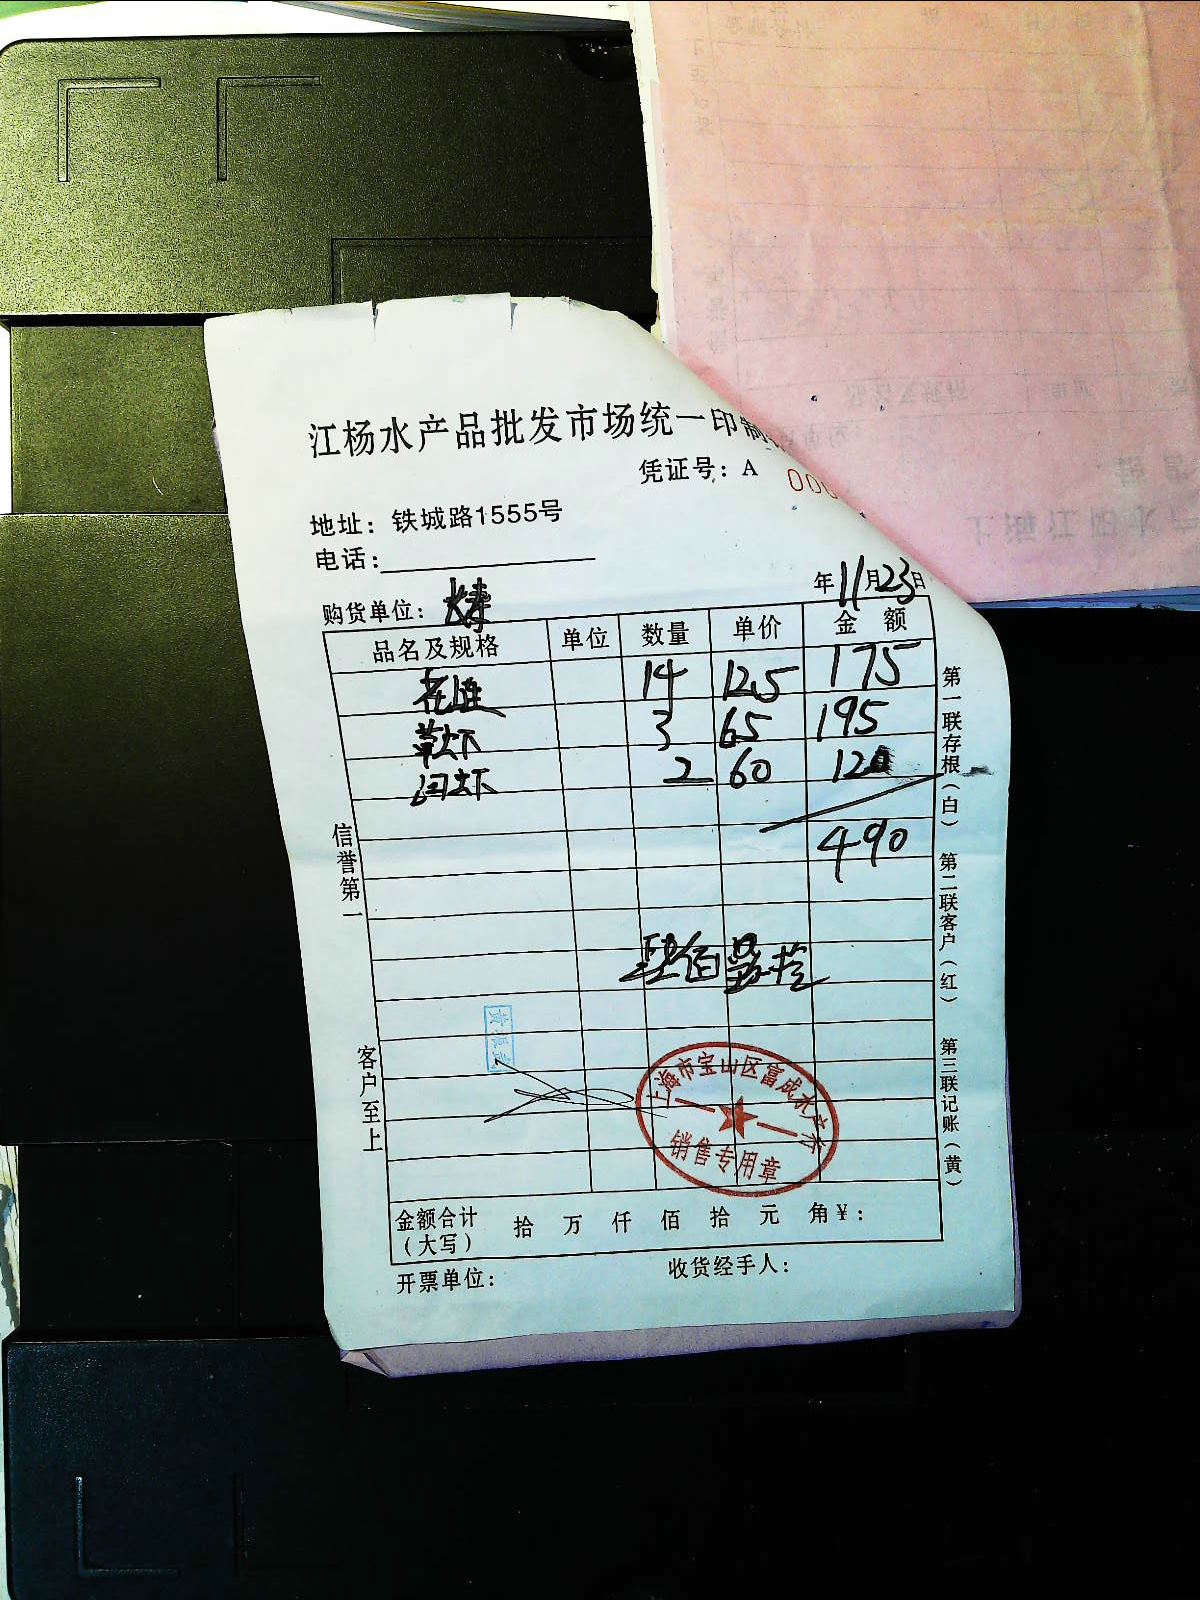 江杨水产品批发市场统一印制
凭证号：A 000
地址：铁城路1555号
电话：
购货单位：
年11月23日
品名及规格 单位 数量 单价 金额
花连 14 12.5 175
草虾 3 65 195
白虾 2 60 120
490
肆佰玖拾
信誉第一
客户至上
第一联存根（白） 第二联客户（红） 第三联记账（黄）
上海市宝山区富成水产行
销售专用章
金额合计（大写） 拾 万 仟 佰 拾 元 角 ¥：
开票单位： 收货经手人：